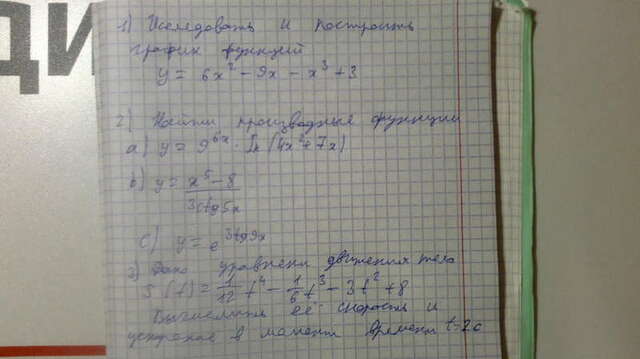 ДИ
1) Исследовать и построить
график функций
y = 6x² - 9x - x³ + 3
2) Найти производные функции
a) y = 9^{6x} · ln(4x²+7x)
b) y = \frac{x⁵ - 8}{3ctg5x}
c) y = e^{3tg9x}
3) Дано уравнени движения тела
S(t) = \frac{1}{12} t⁴ - \frac{1}{6} t³ - 3t² + 8
Вычислить её скорость и
ускорение в момент времени t=2c